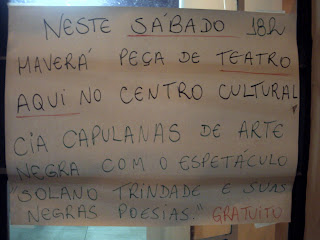 NESTE SÁBADO 18h
HAVERÁ PEÇA DE TEATRO
AQUI NO CENTRO CULTURAL
CIA CAPULANAS DE ARTE
NEGRA COM O ESPETÁCULO
"SOLANO TRINDADE E SUAS
NEGRAS POESIAS." GRATUITO